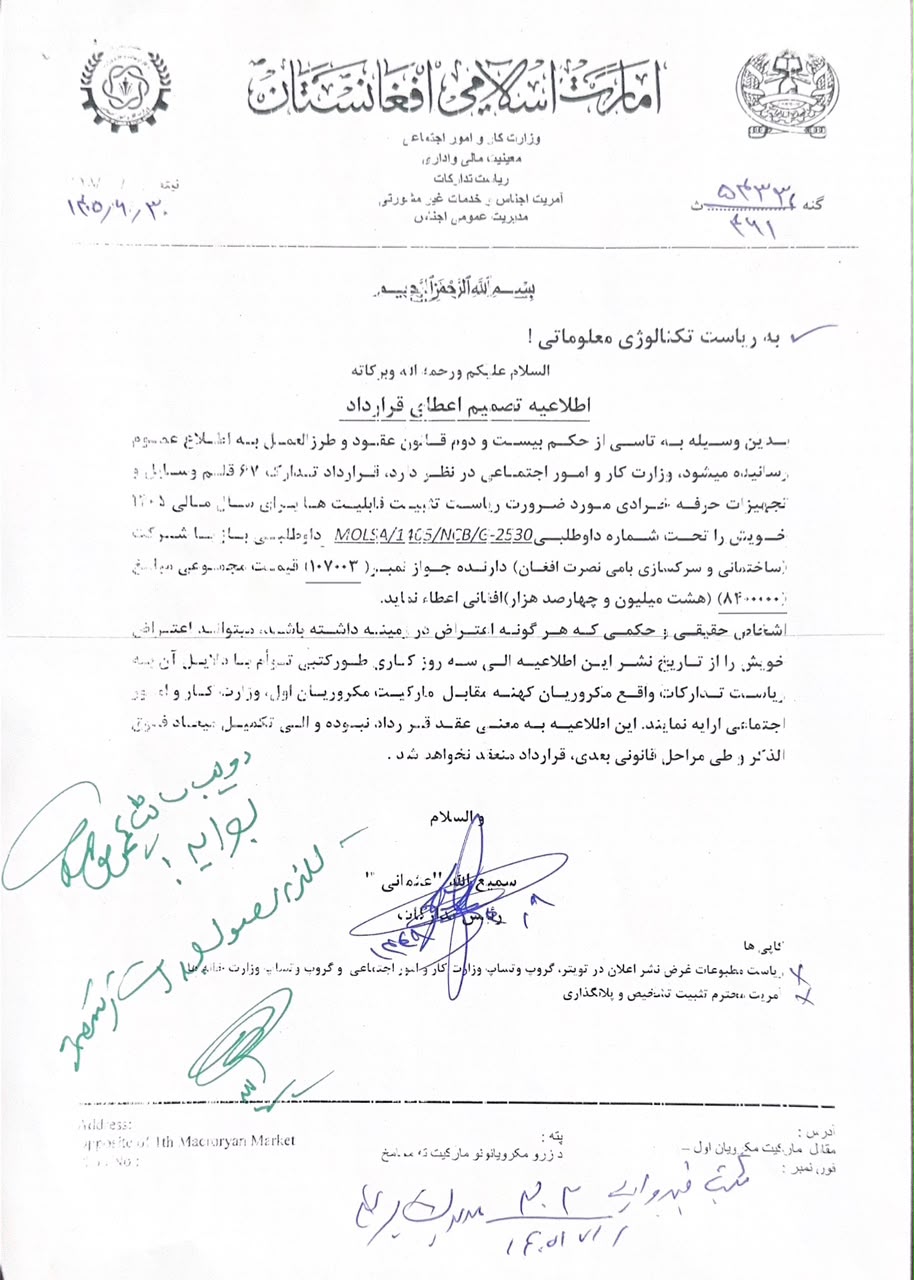 امارت اسلامی افغانستان
وزارت کار و امور اجتماعی
معینیت مالی و اداری
ریاست تدارکات
آمریت اجناس و خدمات غیر مشورتی
مدیریت عمومی اجناس
نېټه
۱۴۰۵/۶/۳۰
گڼه ۵۴۳۳ ث
۴۶۱
بسم الله الرحمن الرحیم
به ریاست تکنالوژی معلوماتی !
السلام علیکم ورحمة الله وبرکاته
اطلاعیه تصمیم اعطای قرارداد
بدین وسیله به تاسی از حکم بیست و دوم قانون عقود و طرزالعمل به اطلاع عموم
رسانیده میشود، وزارت کار و امور اجتماعی در نظر دارد، قرارداد تدارک ۶۷ قلم وسایل و
تجهیزات حرفه انفرادی مورد ضرورت ریاست تثبیت قابلیت ها برای سال مالی ۱۴۰۵
خویش را تحت شماره داوطلبی MOLSA/1405/NCB/G-2530 داوطلبی باز با شرکت
(ساختمانی و سرکسازی بامی نصرت افغان) دارنده جواز نمبر( ۱۰۷۰۰۳) قیمت مجموعی مبلغ
(۸۴۰۰۰۰۰) (هشت میلیون و چهارصد هزار)افغانی اعطاء نماید.
اشخاص حقیقی و حکمی که هر گونه اعتراض در زمینه داشته باشد، میتوانند اعتراض
خویش را از تاریخ نشر این اطلاعیه الی سه روز کاری طورکتبی توأم با دلایل آن به
ریاست تدارکات واقع مکروریان کهنه مقابل مارکیت مکروریان اول، وزارت کار و امور
اجتماعی ارایه نمایند. این اطلاعیه به معنی عقد قرارداد نبوده و الی تکمیل میعاد فوق
الذکر و طی مراحل قانونی بعدی، قرارداد منعقد نخواهد شد .
والسلام
سمیع الله "عثمانی"
رئیس تدارکات
کاپی ها
ریاست مطبوعات غرض نشر اعلان در تویتر، گروپ وتساپ وزارت کار و امور اجتماعی و گروپ وتساپ وزارت
آمریت محترم تثبیت تشخیص و پلانگذاری
آدرس :
مقابل مارکیت مکرویان اول –
فون نمبر :
پته :
د زړو مکرویانونو مارکیت ته مخامخ
Address:
opposite of 1th Macroryan Market